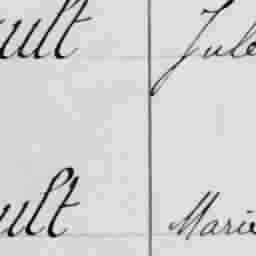 ult Jule
ult Marie